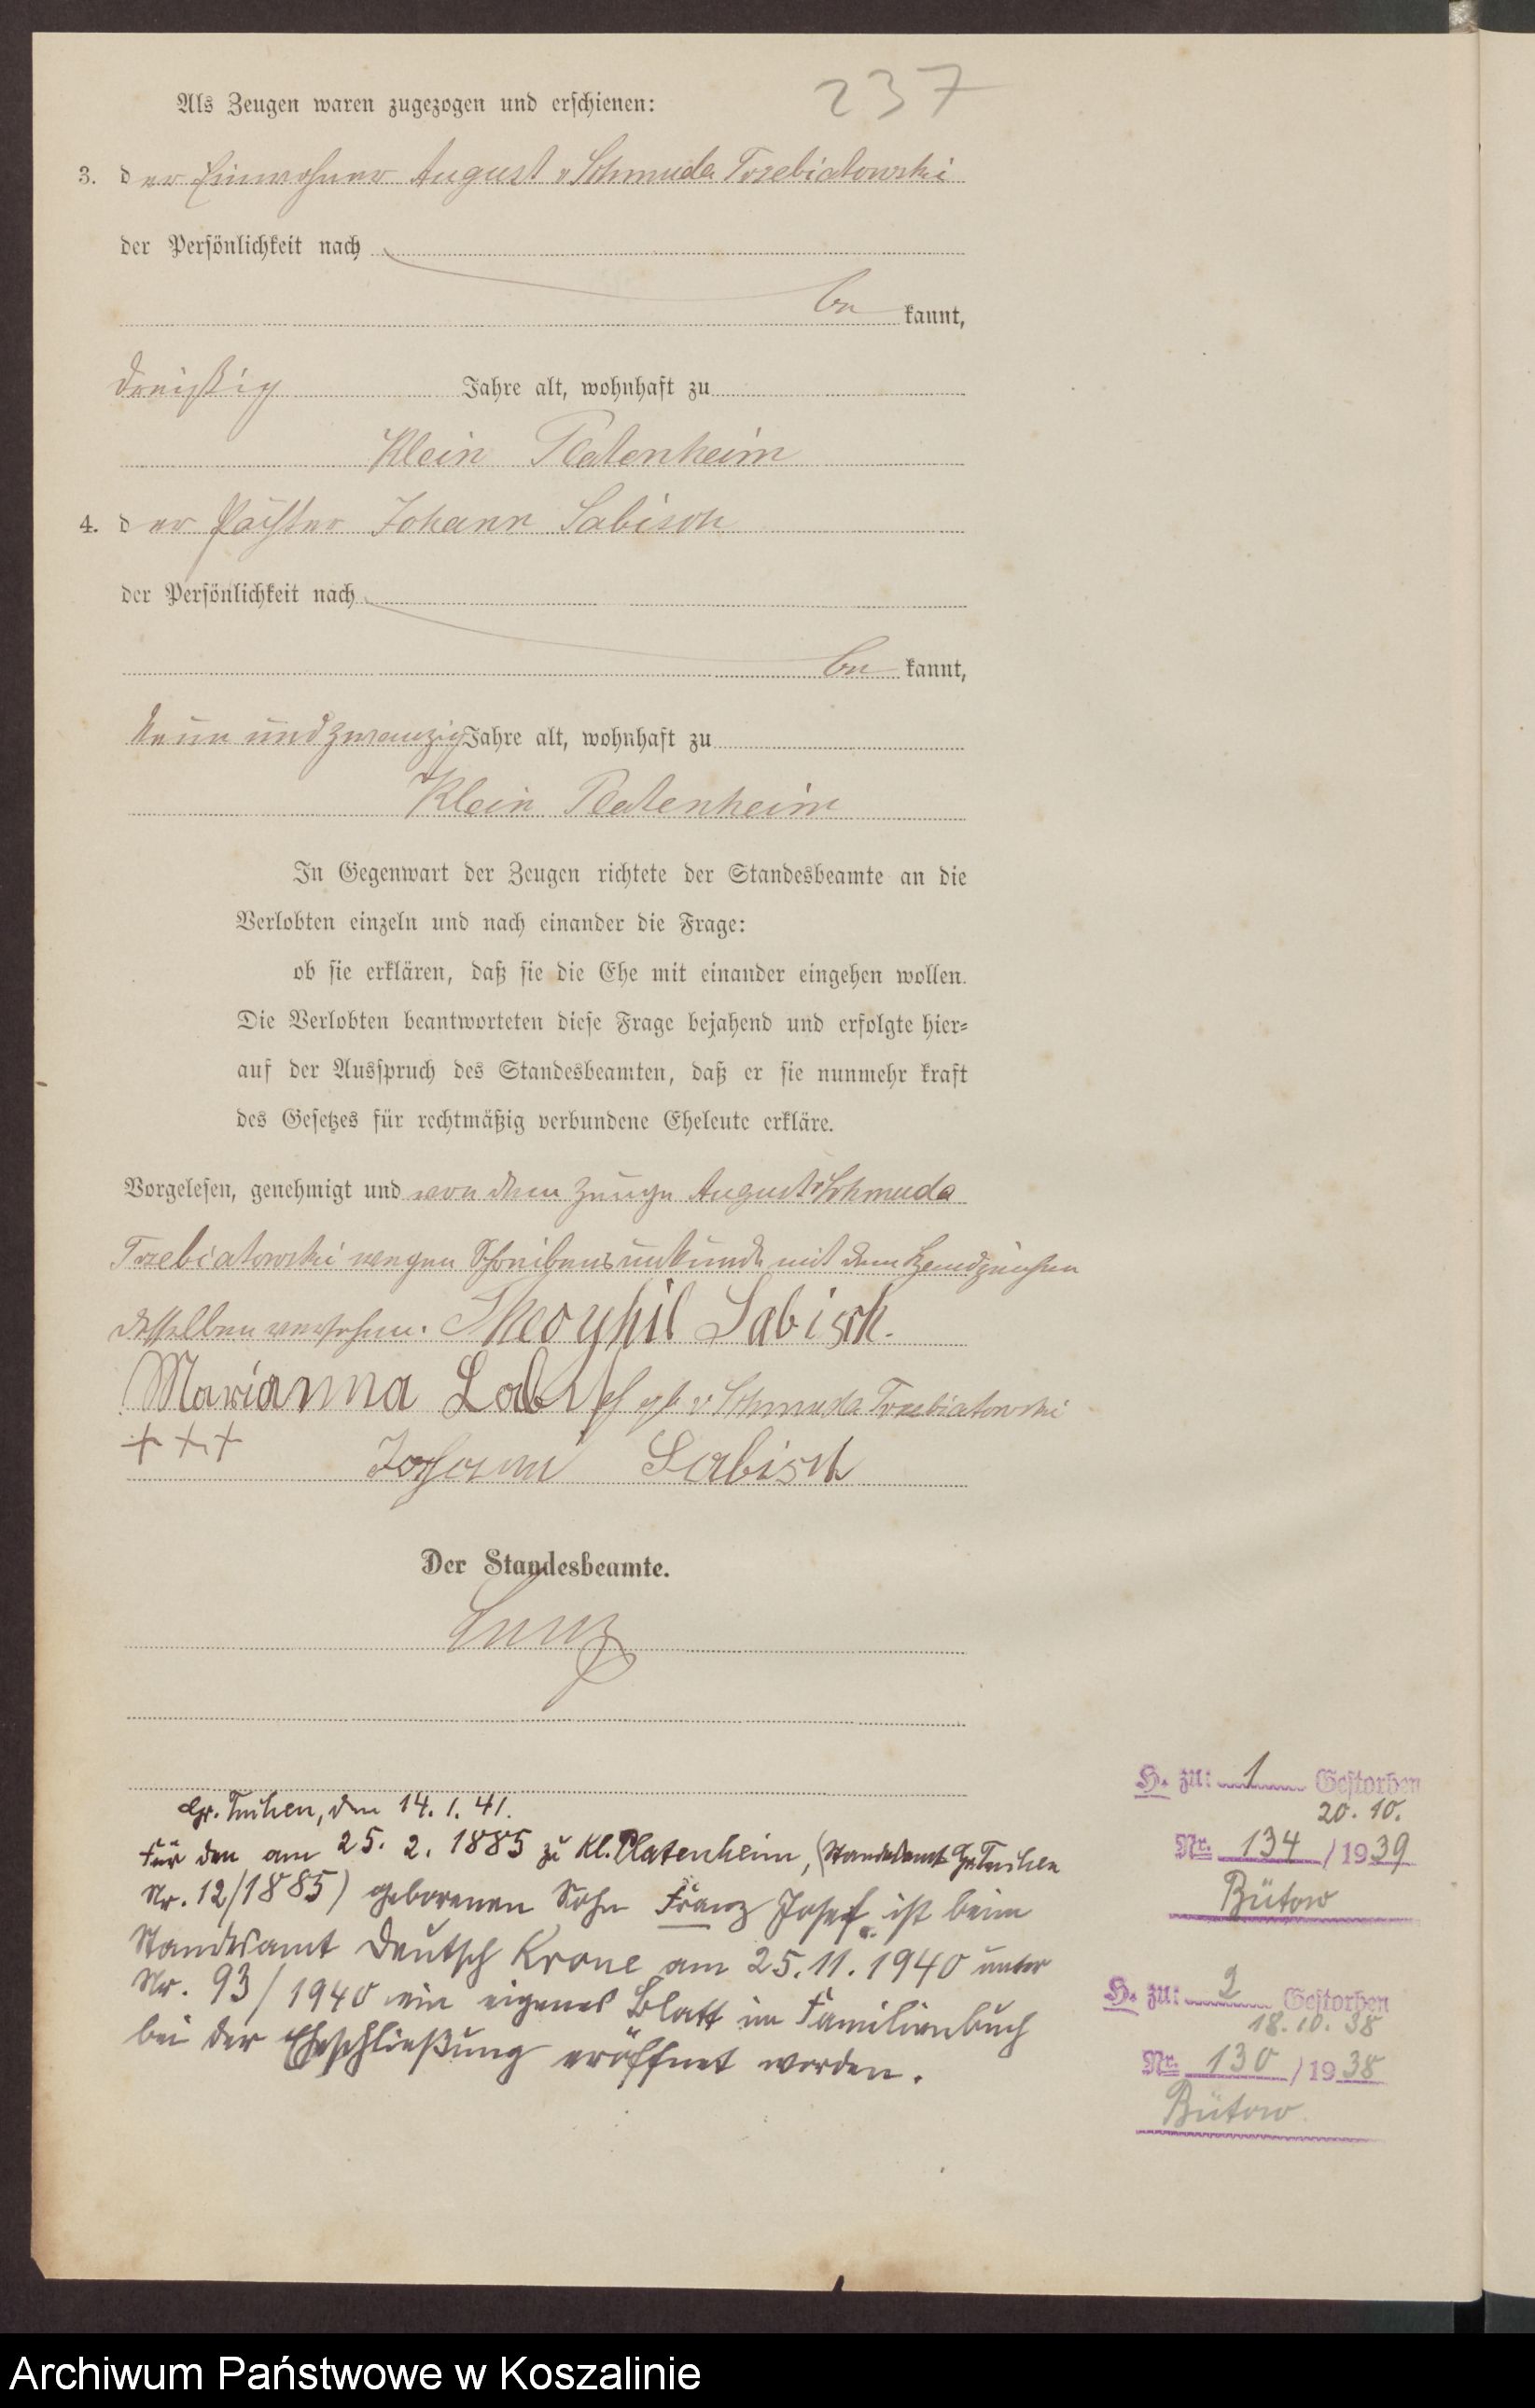 237
Als Zeugen waren zugezogen und erschienen:
3. der Einwohner August v Schmuda Trzebiatowski
der Persönlichkeit nach
be kannt,
dreißig Jahre alt, wohnhaft zu
Klein Platenheim
4. der Pächter Johann Sabisch
der Persönlichkeit nach
be kannt,
neun und zwanzig Jahre alt, wohnhaft zu
Klein Platenheim
In Gegenwart der Zeugen richtete der Standesbeamte an die
Verlobten einzeln und nach einander die Frage:
ob sie erklären, daß sie die Ehe mit einander eingehen wollen.
Die Verlobten beantworteten diese Frage bejahend und erfolgte hier-
auf der Ausspruch des Standesbeamten, daß er sie nunmehr kraft
des Gesetzes für rechtmäßig verbundene Eheleute erkläre.
Vorgelesen, genehmigt und von dem Zeugen August v Schmuda
Trzebiatowski wegen Schreibensunkunde mit dem Handzeichen
desselben versehen. Theophil Sabisch.
Marianna Sabisch geb v Schmuda Trzebiatowski
+++ Johann Sabisch
Der Standesbeamte.
Gr. Tuchen, den 14. 1. 41.
Für den am 25. 2. 1885 zu Kl. Platenheim, (Standesamt Gr. Tuchen
Nr. 12/1885) geborenen Sohn Franz Josef ist beim
Standesamt Deutsch Krone am 25. 11. 1940 unter
Nr. 93/1940 ein eigenes Blatt im Familienbuch
bei der Eheschließung eröffnet worden.
H. zu: 1 Gestorben
20. 10.
Nr. 134 / 1939
Bütow
H. zu: 2 Gestorben
18. 10. 38
Nr. 130 / 1938
Bütow
Archiwum Państwowe w Koszalinie